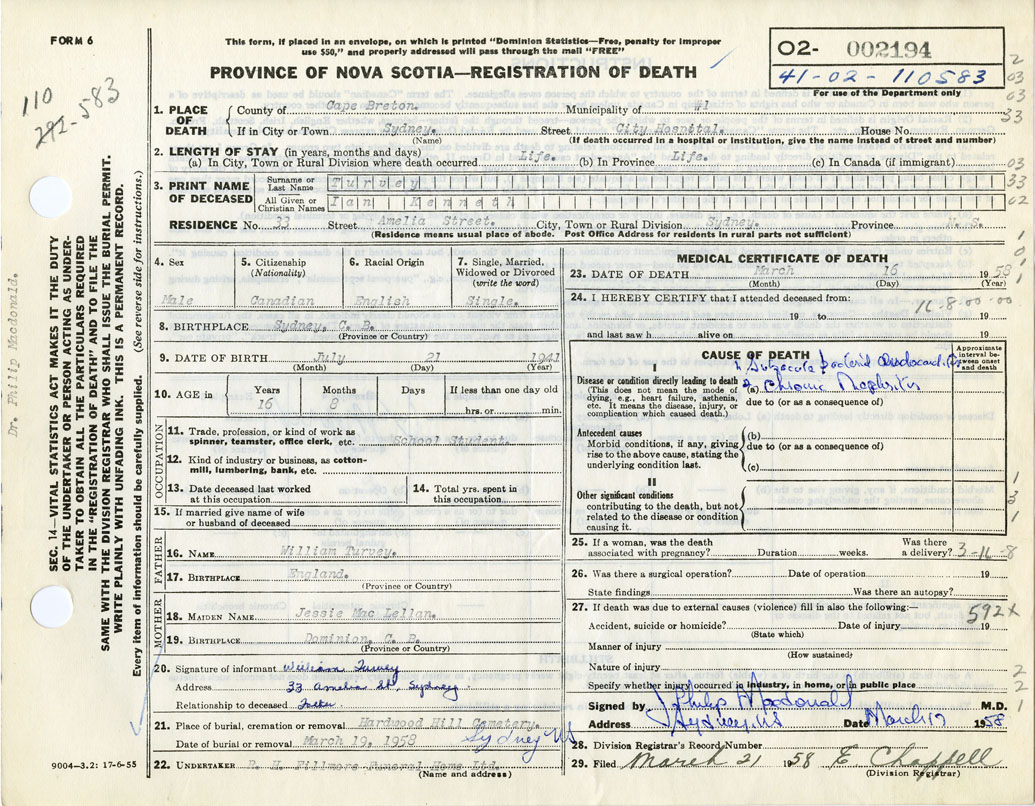 FORM 6
This form, if placed in an envelope, on which is printed "Dominion Statistics—Free, penalty for improper
use $50," and properly addressed will pass through the mail "FREE"
PROVINCE OF NOVA SCOTIA—REGISTRATION OF DEATH
02- 002194
41-02-110583
For use of the Department only
110
583
1. PLACE OF DEATH
County of Cape Breton. Municipality of #1
If in City or Town Sydney. Street City Hospital. House No.
(Name) (If death occurred in a hospital or institution, give the name instead of street and number)
2. LENGTH OF STAY (in years, months and days)
(a) In City, Town or Rural Division where death occurred Life. (b) In Province Life. (c) In Canada (if immigrant)
3. PRINT NAME OF DECEASED
Surname or Last Name Turvey
All Given or Christian Names Ian Kenneth
RESIDENCE No. 33 Street Amelia Street. City, Town or Rural Division Sydney. Province N. S.
(Residence means usual place of abode. Post Office Address for residents in rural parts not sufficient)
4. Sex
Male
5. Citizenship
(Nationality)
Canadian
6. Racial Origin
English
7. Single, Married,
Widowed or Divorced
(write the word)
Single.
8. BIRTHPLACE Sydney, C. B.
(Province or Country)
9. DATE OF BIRTH July 21 1941
(Month) (Day) (Year)
10. AGE in
Years 16
Months 8
Days
If less than one day old
hrs. or min.
OCCUPATION
11. Trade, profession, or kind of work as
spinner, teamster, office clerk, etc. School Student.
12. Kind of industry or business, as cotton-
mill, lumbering, bank, etc.
13. Date deceased last worked
at this occupation
14. Total yrs. spent in
this occupation
15. If married give name of wife
or husband of deceased
FATHER
16. NAME William Turvey.
17. BIRTHPLACE England.
(Province or Country)
MOTHER
18. MAIDEN NAME Jessie Mac Lellan.
19. BIRTHPLACE Dominion, C. B.
(Province or Country)
20. Signature of informant William Turvey
Address 33 Amelia St, Sydney
Relationship to deceased Father
21. Place of burial, cremation or removal Hardwood Hill Cemetery.
Sydney NS
Date of burial or removal March 19, 1958
22. UNDERTAKER T. H. Fillmore Funeral Home Ltd.
(Name and address)
9004—3.2: 17-6-55
MEDICAL CERTIFICATE OF DEATH
23. DATE OF DEATH March 16 1958
(Month) (Day) (Year)
24. I HEREBY CERTIFY that I attended deceased from:
16-8-00-00
19 to 19
and last saw h alive on 19
CAUSE OF DEATH
Approximate
interval be-
tween onset
and death
I
Disease or condition directly leading to death
(This does not mean the mode of
dying, e.g., heart failure, asthenia,
etc. It means the disease, injury, or
complication which caused death.)
1. Subacute bacterial Endocarditis
(a) 2 Chronic Nephritis
due to (or as a consequence of)
Antecedent causes
Morbid conditions, if any, giving
rise to the above cause, stating the
underlying condition last.
(b)
due to (or as a consequence of)
(c)
II
Other significant conditions
contributing to the death, but not
related to the disease or condition
causing it.
25. If a woman, was the death
associated with pregnancy? Duration weeks. Was there
a delivery? 3-16-8
26. Was there a surgical operation? Date of operation 19
State findings Was there an autopsy?
27. If death was due to external causes (violence) fill in also the following:—
592x
Accident, suicide or homicide? Date of injury 19
(State which)
Manner of injury
(How sustained)
Nature of injury
Specify whether injury occurred in industry, in home, or in public place
Signed by J Philip Macdonald M.D.
Address Sydney NS Date March 17 1958
28. Division Registrar's Record Number
29. Filed March 21 1958 E Chappell
(Division Registrar)
SEC. 14—VITAL STATISTICS ACT MAKES IT THE DUTY
OF THE UNDERTAKER OR PERSON ACTING AS UNDER-
TAKER TO OBTAIN ALL THE PARTICULARS REQUIRED
IN THE "REGISTRATION OF DEATH" AND TO FILE THE
SAME WITH THE DIVISION REGISTRAR WHO SHALL ISSUE THE BURIAL PERMIT.
WRITE PLAINLY WITH UNFADING INK. THIS IS A PERMANENT RECORD.
Every item of information should be carefully supplied. (See reverse side for instructions.)
Dr. Philip Macdonald.
2
03
03
33
03
33
02
1
0
1
1
3
1
2
2
1